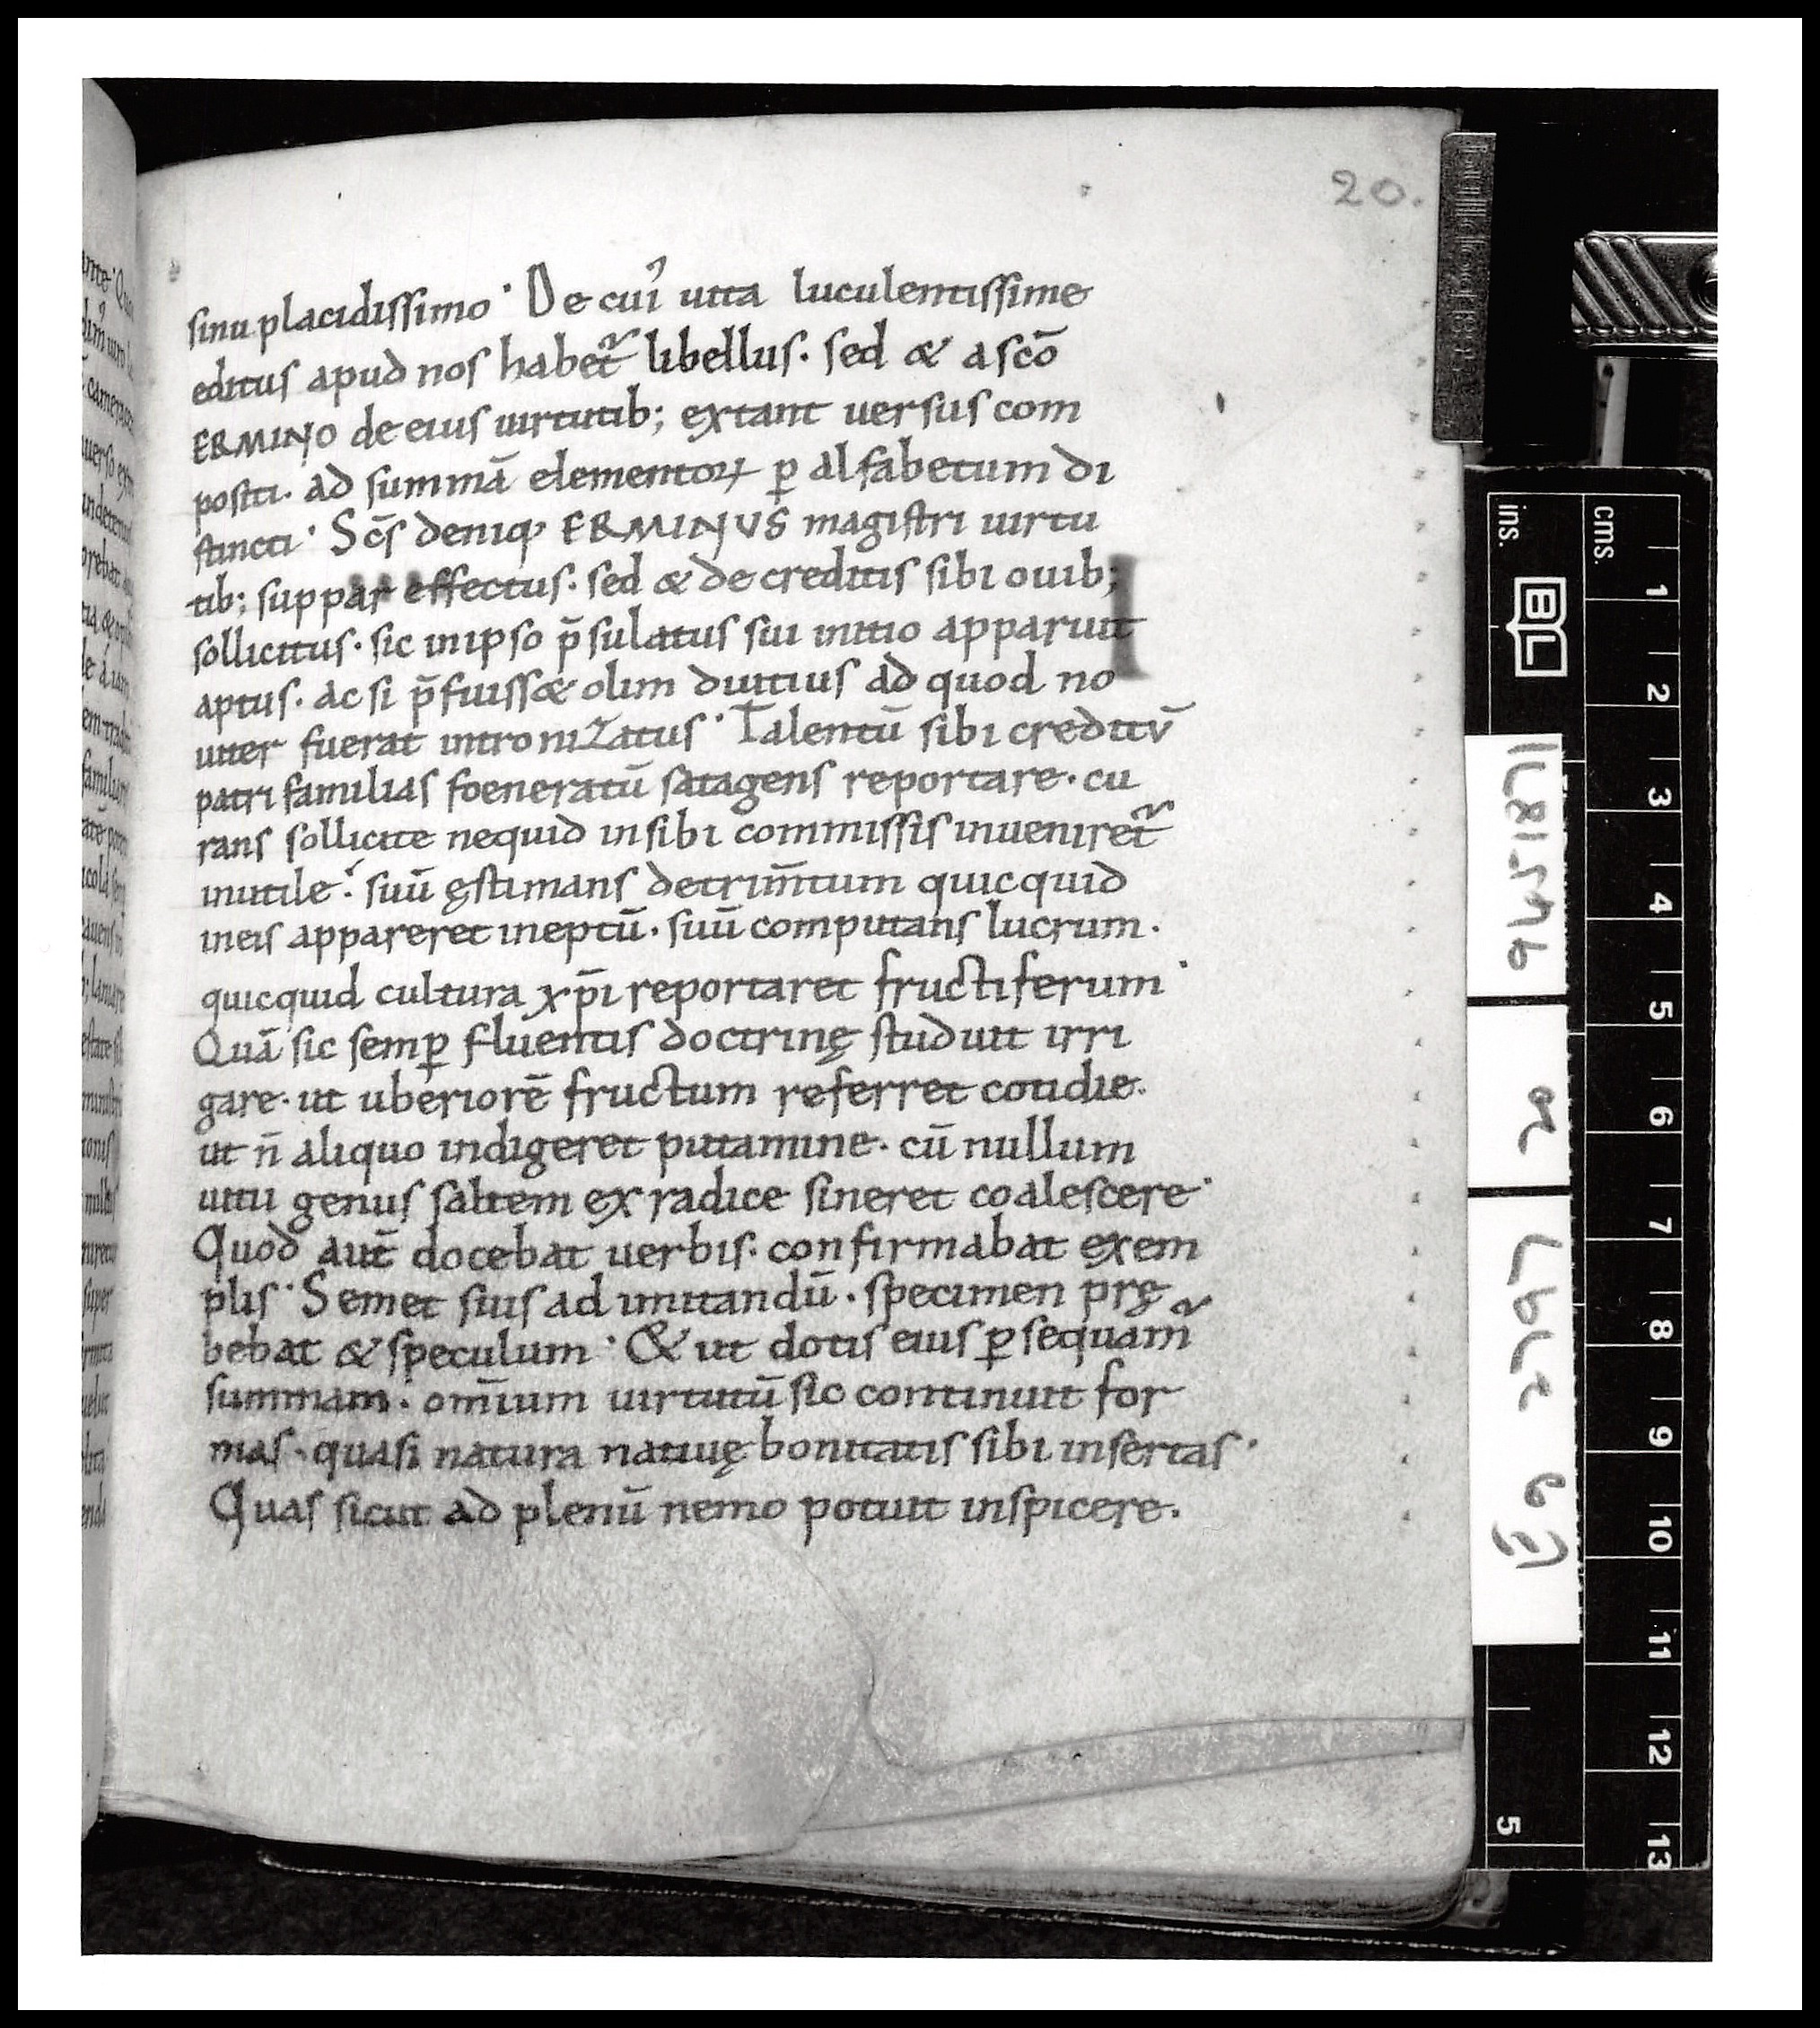 20.
sinu placidissimo· De cuiꝰ uita luculentissime
editus apud nos habet᷑ libellus. sed & a scō
ERMINO de eius uirtutib; extant uersus com
positi. ad summā elementoꝝ ꝑ alfabetum di
stincti· Sc̄s deniq; ERMINUS magistri uirtu
tib; suppar effectus. sed & de creditis sibi ouib;
sollicitus. sic in ipso p̄sulatus sui initio apparuit
aptus. ac si p̄fuiss& olim diutius ad quod no
uiter fuerat intronizatus· Talentū sibi creditū
patri familias foeneratū satagens reportare. cu
rans sollicite nequid in sibi commissis inueniret᷑
inutile. suū ęstimans detrim̄tum quicquid
in eis appareret ineptū. suū computans lucrum.
quicquid cultura xp̄i reportaret fructiferum·
Quā sic semꝑ fluentis doctrinę studuit irri
gare. ut uberiorē fructum referret cotidie.
ut n̄ aliquo indigeret putamine. cū nullum
uitii genus saltem ex radice sineret coalescere·
Quod aut̄ docebat uerbis. confirmabat exem
plis· Semet suis ad imitandū. specimen prę
bebat & speculum· & ut dotis eius ꝑsequam᷑
summam. om̄ium uirtutū sic continuit for
mas. quasi natura natiuę bonitatis sibi insertas·
Quas sicut ad plenū nemo potuit inspicere.
ins.
cms.
BL
1
2
3
4
5
6
7
8
9
10
11
12
13
5